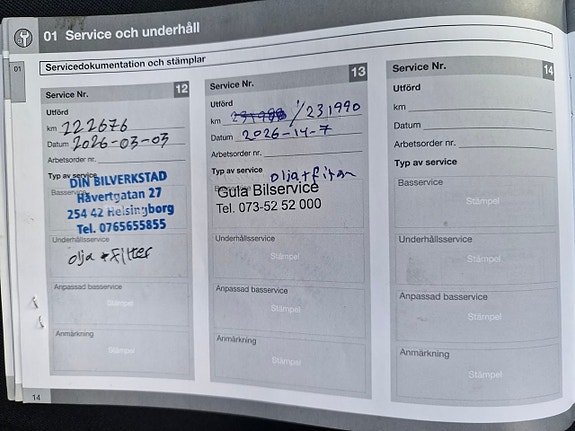 01 Service och underhåll
01
Servicedokumentation och stämplar
Service Nr. 12
Utförd
km 222676
Datum 2026-03-03
Arbetsorder nr.
Typ av service
DIN BILVERKSTAD
Hävertgatan 27
254 42 Helsingborg
Tel. 0765655855
Underhållsservice
olja + Filter
Anpassad basservice
Stämpel
Anmärkning
Stämpel
Service Nr. 13
Utförd
km 231990
Datum 2026-14-7
Arbetsorder nr.
Typ av service olja + filter
Gula Bilservice
Tel. 073-52 52 000
Underhållsservice
Stämpel
Anpassad basservice
Stämpel
Anmärkning
Stämpel
Service Nr. 14
Utförd
km
Datum
Arbetsorder nr.
Typ av service
Basservice
Stämpel
Underhållsservice
Stämpel
Anpassad basservice
Stämpel
Anmärkning
Stämpel
14